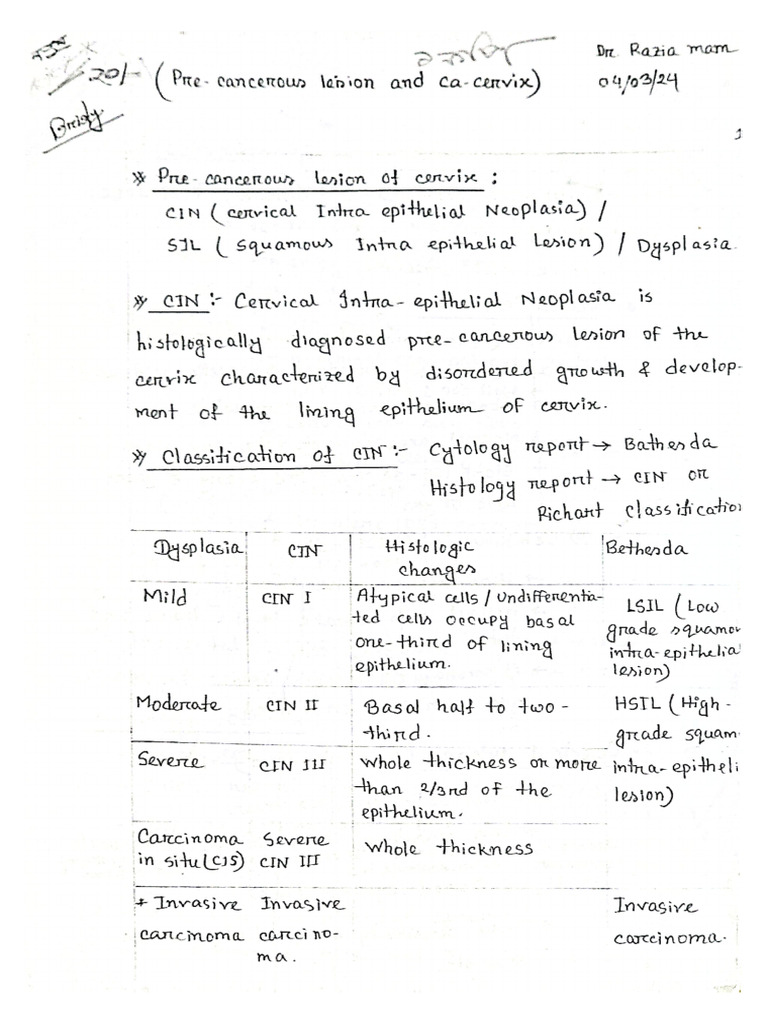 Dr. Razia mam
201- (Pre-cancerous lesion and ca-cervix)
04/03/24
Bristy
1
* Pre-cancerous lesion of cervix :
CIN (cervical Intra epithelial Neoplasia) /
SIL (Squamous Intra epithelial Lesion) / Dysplasia.
* CIN :- Cervical Intra-epithelial Neoplasia is
histologically diagnosed pre-cancerous lesion of the
cervix characterized by disordered growth & develop-
ment of the lining epithelium of cervix.
* Classification of CIN :- Cytology report → Bathesda
Histology report → CIN or
Richart Classification
Dysplasia CIN Histologic changes Bethesda
Mild CIN I Atypical cells / undifferentia-
ted cells occupy basal
one-third of lining
epithelium.
LSIL (Low
grade squamou
intra-epithelial
lesion)
Moderate CIN II Basal half to two-
third.
HSIL (High-
grade squam
intra-epitheli
lesion)
Severe CIN III whole thickness or more
than 2/3rd of the
epithelium.
Carcinoma in situ (CIS) Severe CIN III whole thickness
+ Invasive carcinoma Invasive carcino-
ma.
Invasive
carcinoma.